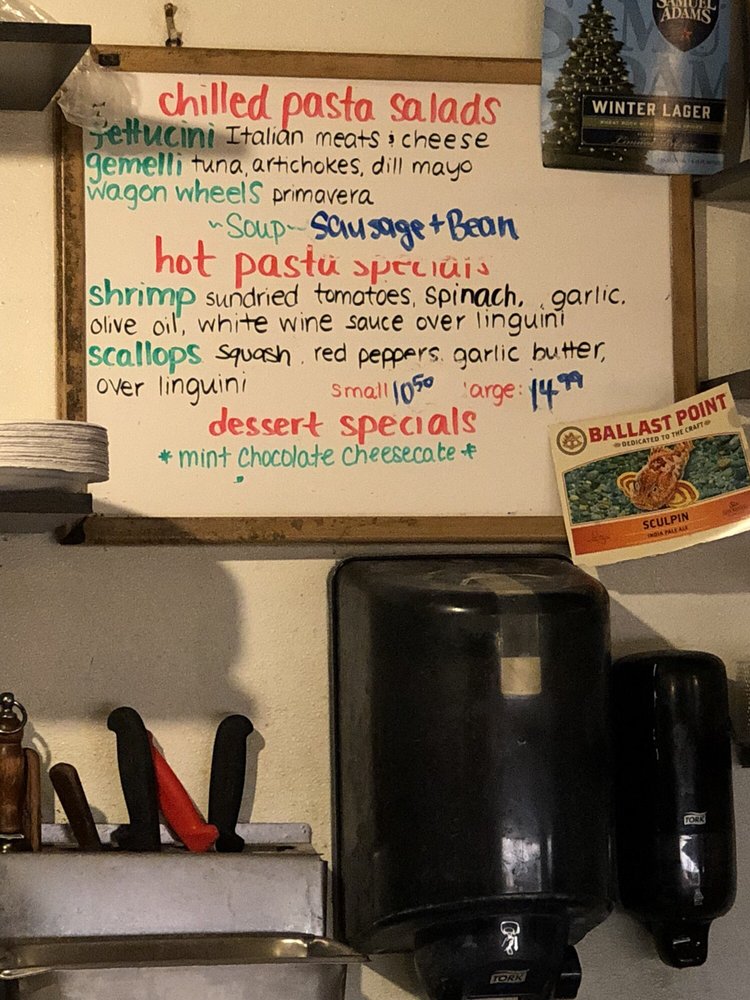 chilled pasta salads
fettucini Italian meats & cheese
gemelli tuna, artichokes, dill mayo
wagon wheels primavera
~Soup~ Sausage + Bean
hot pasta specials
shrimp sundried tomatoes, spinach, garlic,
olive oil, white wine sauce over linguini
scallops squash, red peppers, garlic butter,
over linguini small 10.50 large: 14.99
dessert specials
* mint chocolate cheesecate *
SAMUEL
ADAMS
WINTER LAGER
BALLAST POINT
DEDICATED TO THE CRAFT
SCULPIN
INDIA PALE ALE
TORK
TORK